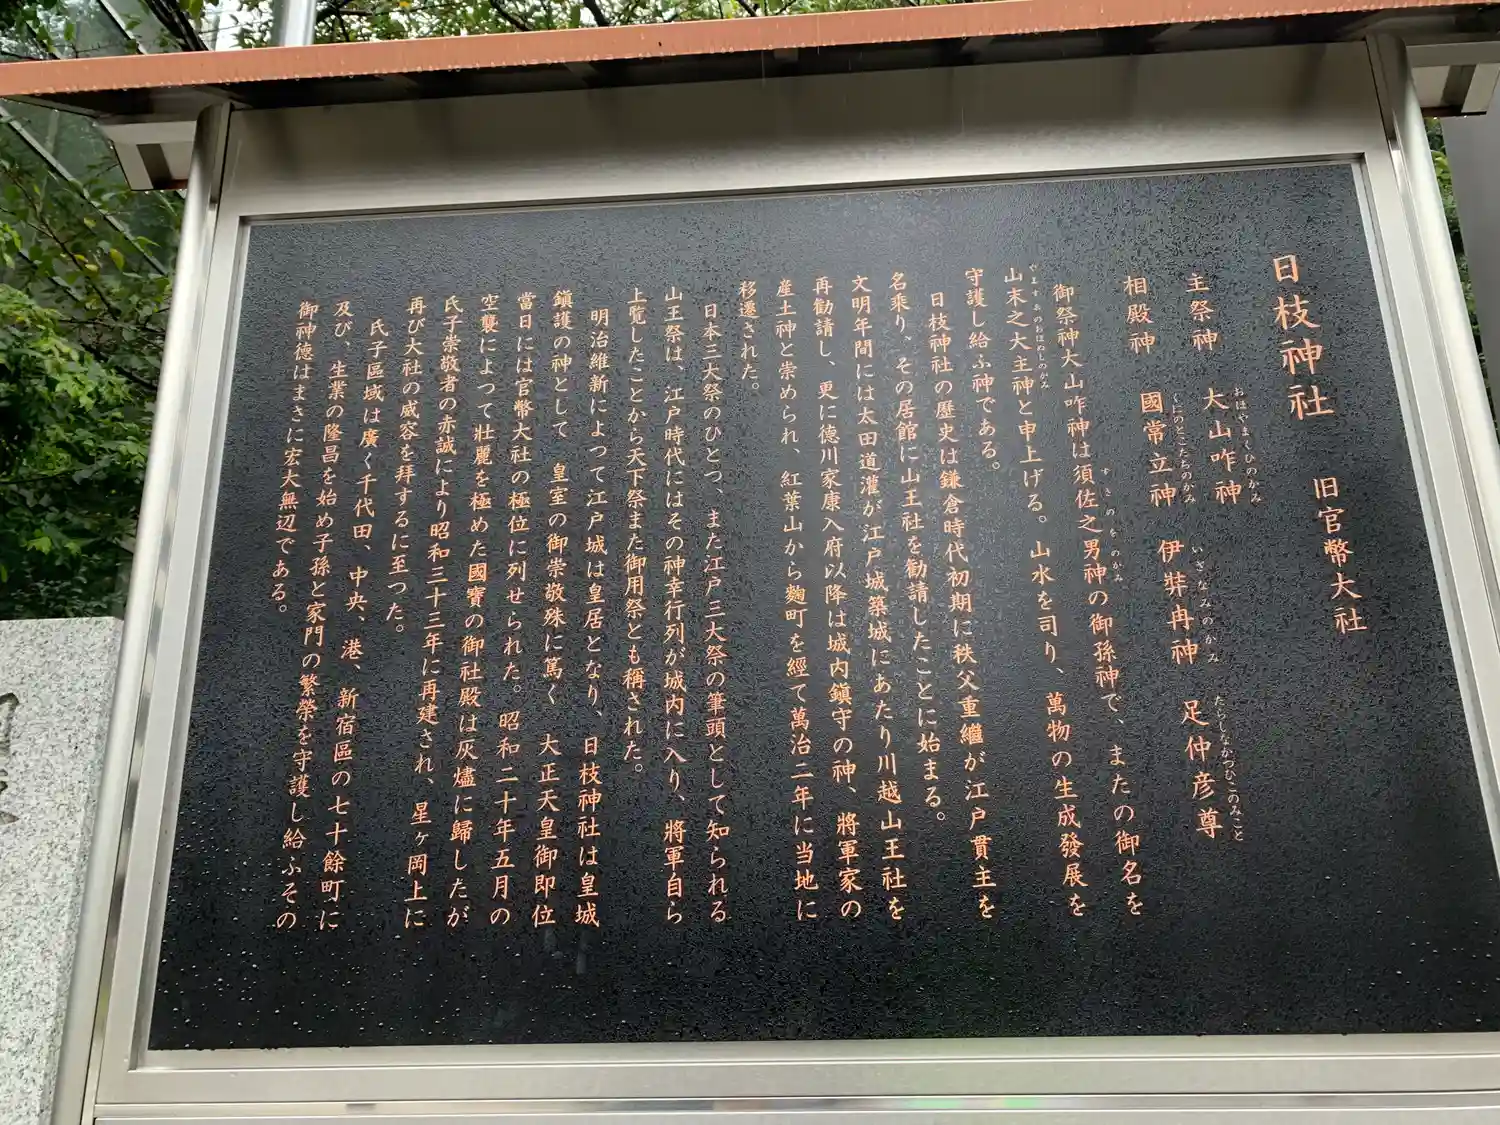 日枝神社　旧官幣大社
主祭神　大山咋神　おほやまくひのかみ
相殿神　國常立神　くにのとこたちのかみ　伊弉冉神　いざなみのかみ　足仲彦尊　たらしなかつひこのみこと
御祭神大山咋神は須佐之男神の御孫神で、またの御名を
山末之大主神と申上げる。山水を司り、萬物の生成發展を
守護し給ふ神である。
日枝神社の歷史は鎌倉時代初期に秩父重繼が江戸貫主を
名乘り、その居館に山王社を勧請したことに始まる。
文明年間には太田道灌が江戸城築城にあたり川越山王社を
再勧請し、更に德川家康入府以降は城内鎭守の神、將軍家の
産土神と崇められ、紅葉山から麴町を經て萬治二年に当地に
移遷された。
日本三大祭のひとつ、また江戸三大祭の筆頭として知られる
山王祭は、江戸時代にはその神幸行列が城内に入り、將軍自ら
上覧したことから天下祭また御用祭とも稱された。
明治維新によつて江戸城は皇居となり、日枝神社は皇城
鎭護の神として　皇室の御崇敬殊に篤く　大正天皇御即位
當日には官幣大社の極位に列せられた。昭和二十年五月の
空襲によつて壯麗を極めた國寶の御社殿は灰燼に歸したが
氏子崇敬者の赤誠により昭和三十三年に再建され、星ヶ岡上に
再び大社の威容を拜するに至つた。
氏子區域は廣く千代田、中央、港、新宿區の七十餘町に
及び、生業の隆昌を始め子孫と家門の繁榮を守護し給ふその
御神德はまさに宏大無辺である。